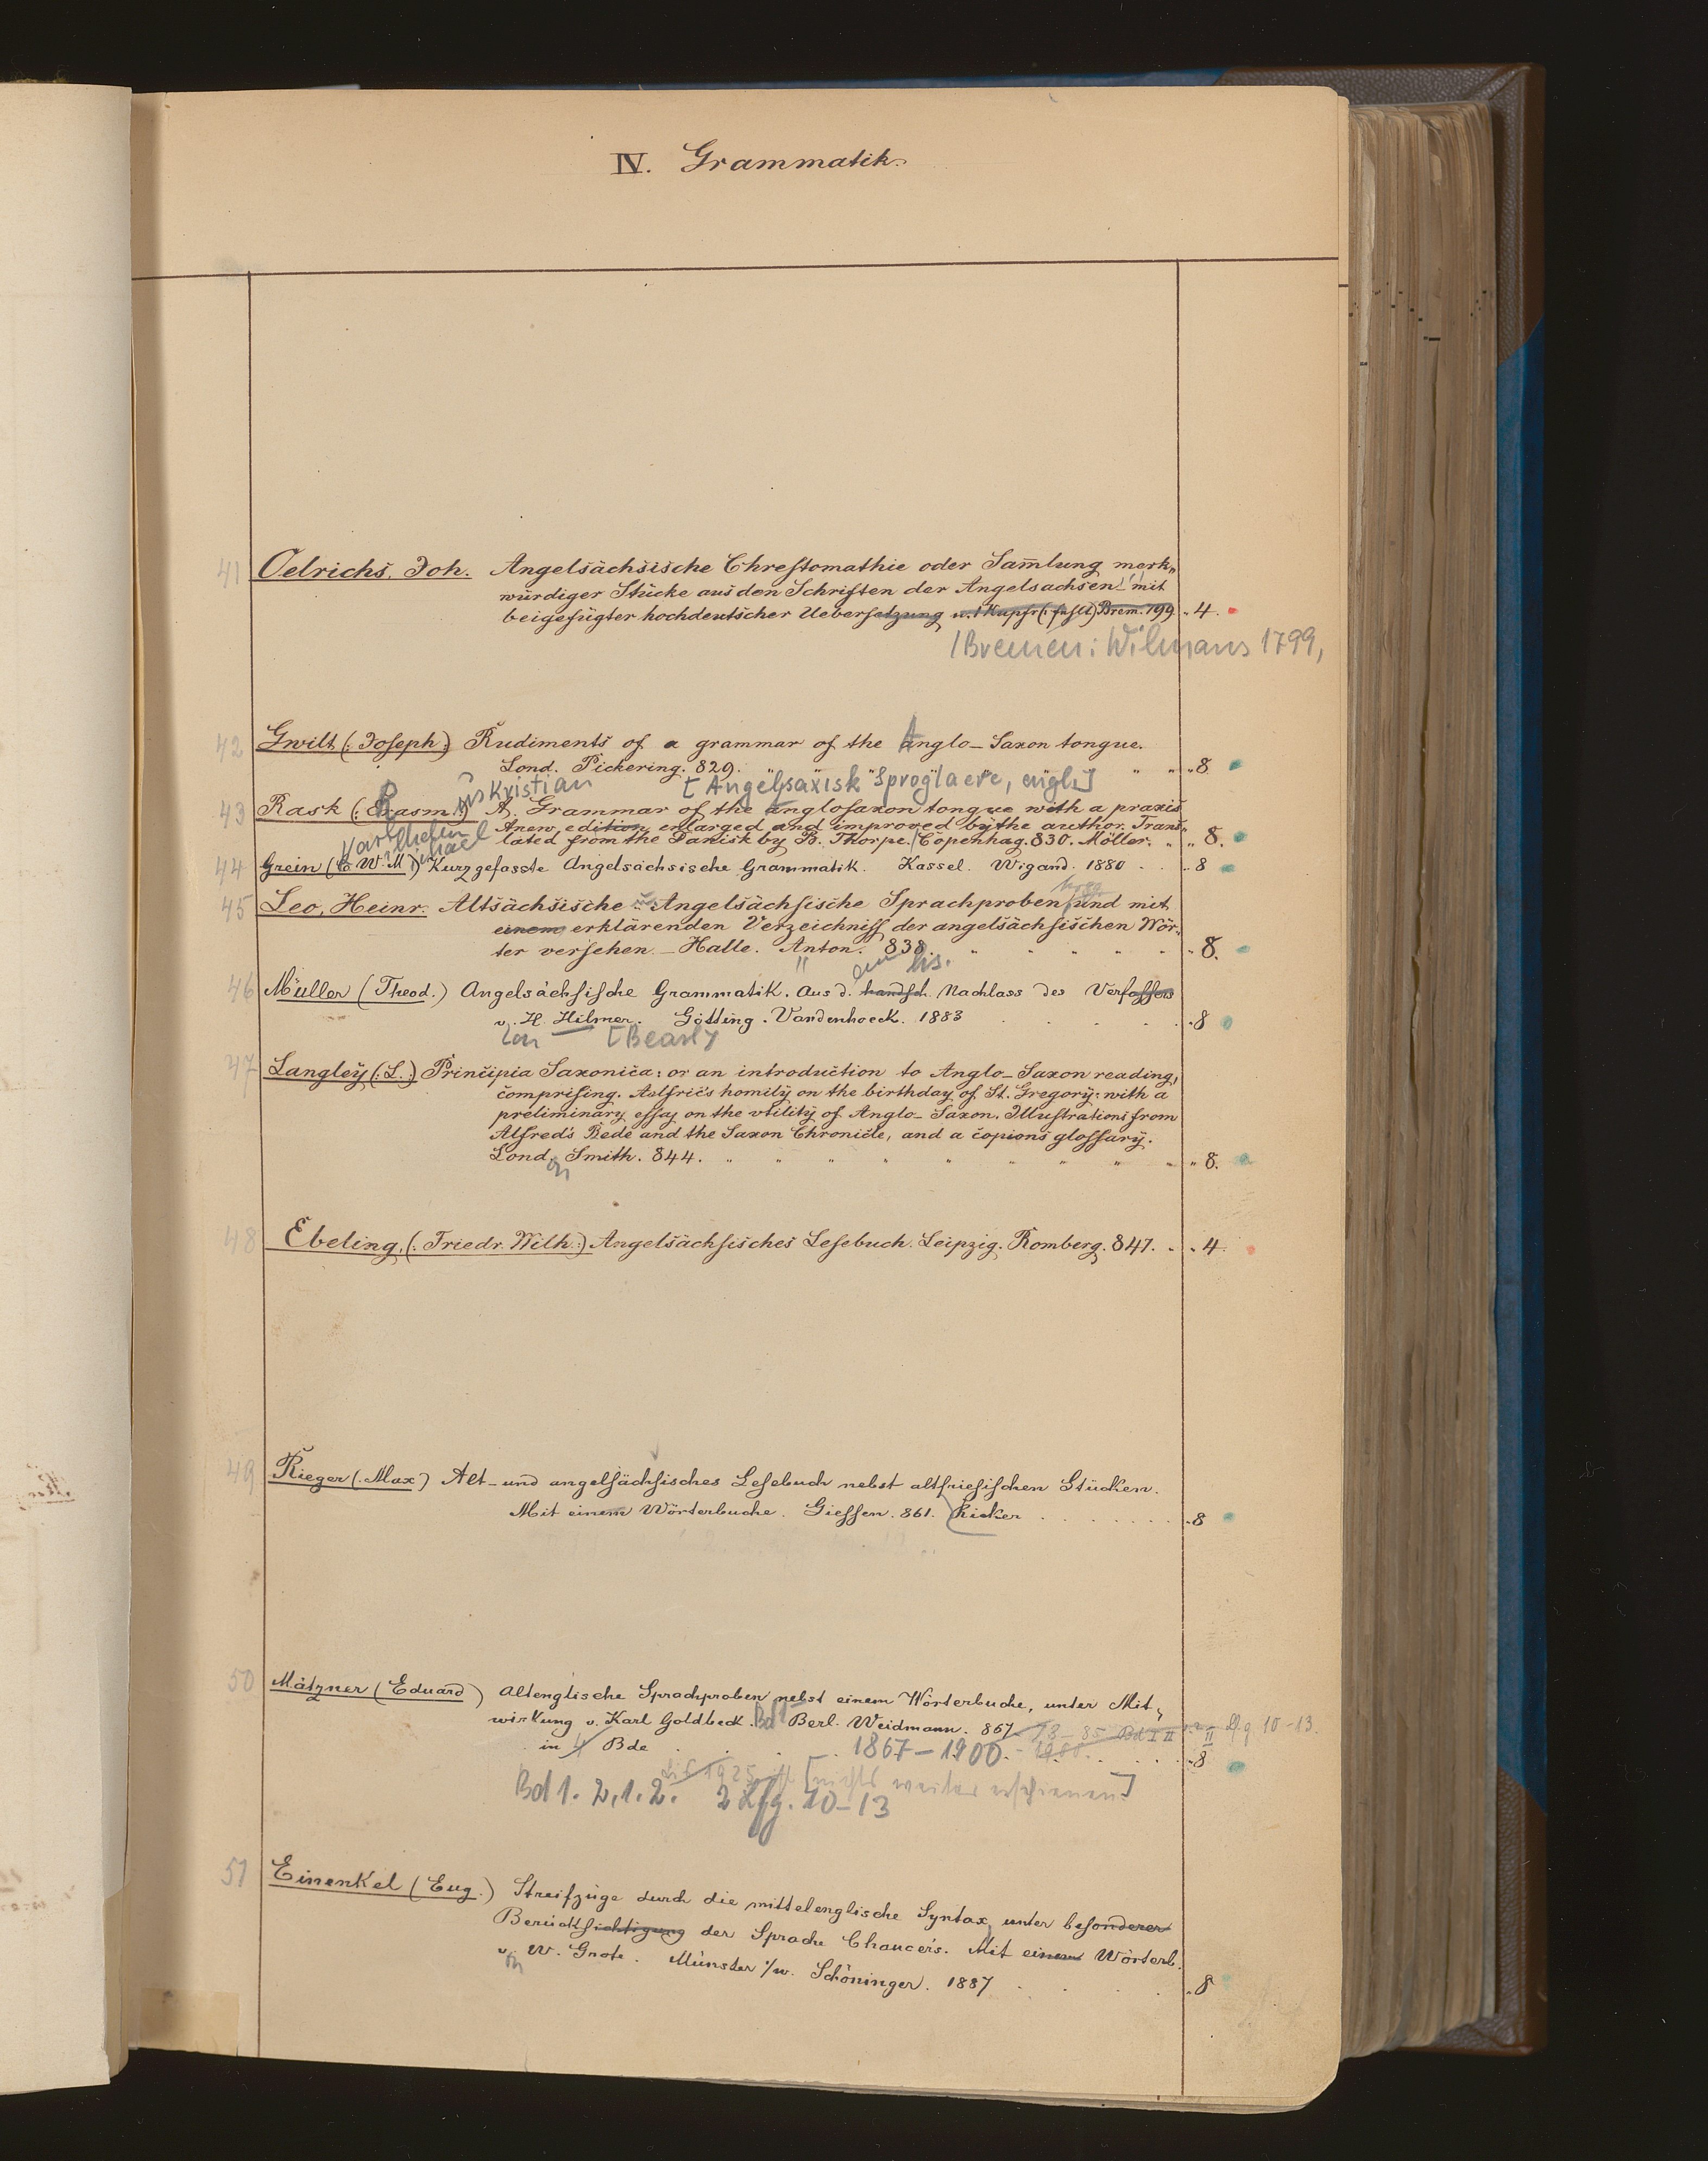 IV. Grammatik.
41 Oelrichs, Joh. Angelsächsische Chrestomathie oder Sam̄lung merk„
würdiger Stücke aus den Schriften der Angelsachsen mit
beigefügter hochdeutscher Uebersetzung u. 1 Kupfr (: fehlt) Brem. 799 „ 4.
/Bremen: Wilmans 1799,
42 Gwilt (: Joseph :) Rudiments of a grammar of the Anglo-Saxon tongue.
Lond. Pickering. 829. „ 8
us Kristian [Angelsaxisk Sproglaere, engl.]
43 Rask (: Erasm. :) A. Grammar of the anglosaxon tongue with a praxis
Anew edition enlarged and improved by the author. Trans„
lated from the Danisk by B. Thorpe. Copenhag. 830. Möller. „ 8.
Karl Wilhelm Michael
44 Grein (C. W. M.) Kurzgefasste Angelsächsische Grammatik. Kassel. Wigand. 1880 . . 8
45 Leo, Heinr. Altsächsische u. Angelsächsische Sprachproben hrsg. und mit
einem erklärenden Verzeichniss der angelsächsischen Wör„
ter versehen. - Halle. Anton. 838. „ 8.
em hs.
46 Müller (Theod.) Angelsächsische Grammatik. Aus d. handsch. Nachlass des Verfassers
v. H. Hilmer. Götting. Vandenhoeck. 1883 . 8
on [Bearb]
47 Langley (: L. :) Principia Saxonica: or an introduction to Anglo-Saxon reading,
comprising. Aelfric's homily on the birthday of St. Gregory: with a
preliminary essay on the utility of Anglo-Saxon. Illustrations from
Alfred's Bede and the Saxon Chronicle, and a copions glossary.
Lond. Smith. 844. „ 8.
on
48 Ebeling, (: Friedr. Wilh. :) Angelsächsisches Lesebuch. Leipzig. Romberg. 847. . 4.
49 Rieger (: Max) Alt- und angelsächsisches Lesebuch nebst altfriesischen Stücken.
Mit einem Wörterbuche. Giessen. 861. Ricker . 8
50 Mätzner (Eduard) Altenglische Sprachproben nebst einem Wörterbuche, unter Mit„
wirkung v. Karl Goldbeck. Bd 1 Berl. Weidmann. 867 - 78 - 85 Bd I II II Lfg 10-13.
in 4 Bde 1867-1900. - 1900. . 8
bis 1925 [nichts weiter erschienen]
Bd 1. 2,1. 2. 2 Lfg. 10-13
51 Einenkel (Eug.) Streifzüge durch die mittelenglische Syntax, unter besonderer
Berücksichtigung der Sprache Chaucers. Mit einem Wörterb.
v. W. Grote. Münster i/w. Schöninger. 1887 . 8
on